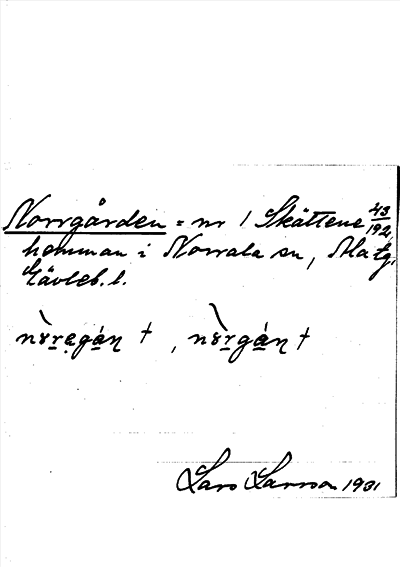 Norrgården = nr 1 Skättene 43/192
hemman i Norrala sn, Ala tg,
Gävleb. l.
nòregán †, nòrgán †
Lars Larsson 1931